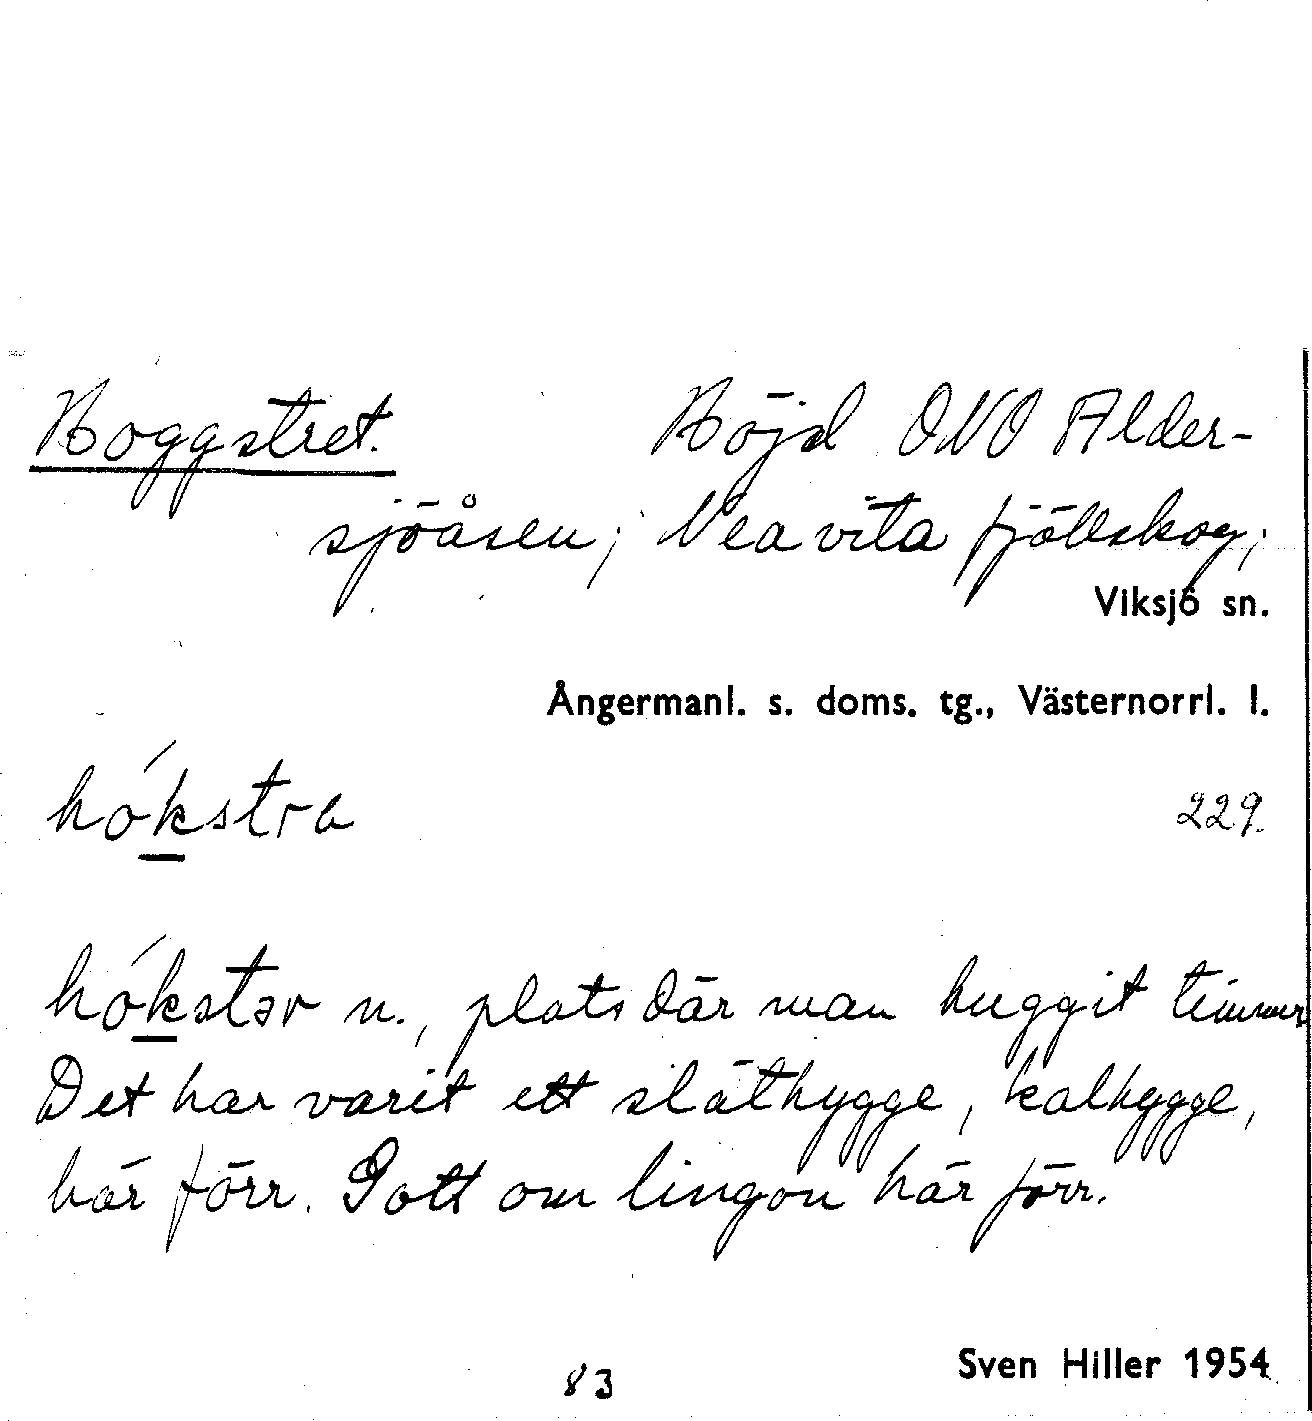 Hoggstret. Höjd ONO Alder-
sjöåsen; Nea vita fjällskog;
Viksjö sn.
Ångermanl. s. doms. tg., Västernorrl. l.
hókstra 229.
hókstər n., plats där man huggit timmer
Det har varit ett släthygge, kalhygge,
här förr. Gott om lingon här förr.
83 Sven Hiller 1954